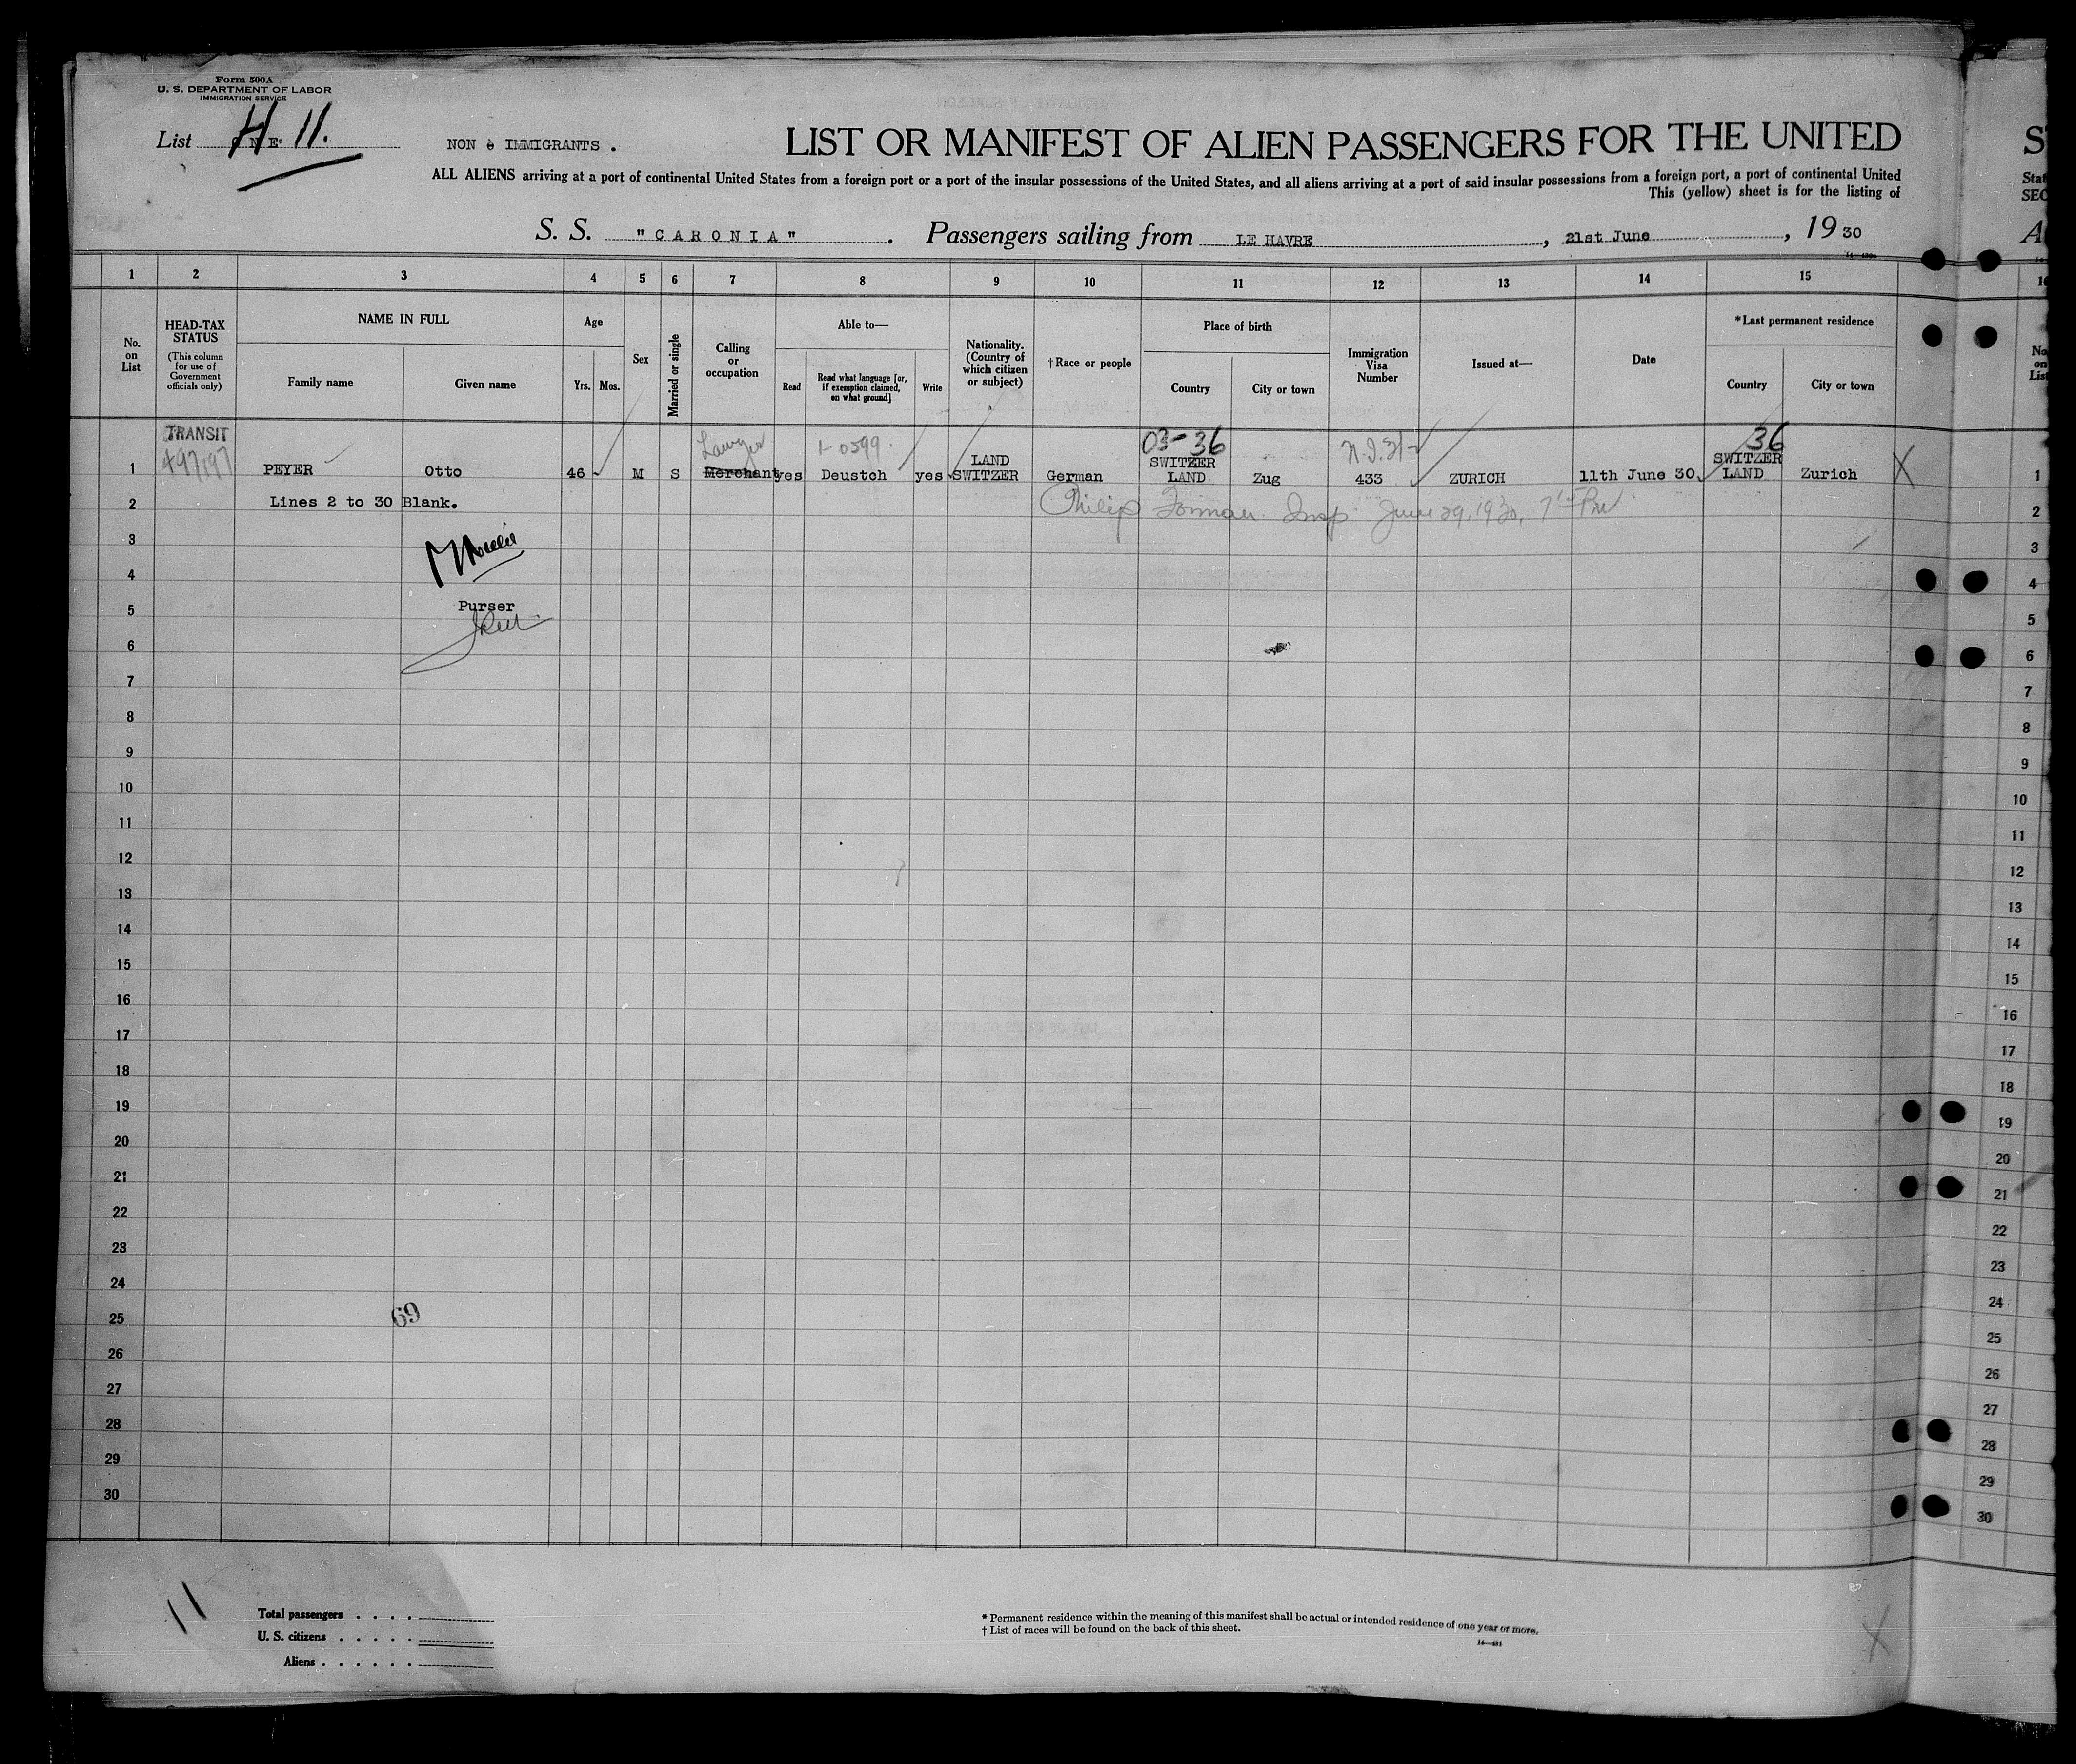 Form 500A
U. S. DEPARTMENT OF LABOR
IMMIGRATION SERVICE
List ONE H 11.
NON & IMMIGRANTS .
LIST OR MANIFEST OF ALIEN PASSENGERS FOR THE UNITED
ALL ALIENS arriving at a port of continental United States from a foreign port or a port of the insular possessions of the United States, and all aliens arriving at a port of said insular possessions from a foreign port, a port of continental United
This (yellow) sheet is for the listing of
S. S. "CARONIA" . Passengers sailing from LE HAVRE , 21st June , 1930
1 2 3 4 5 6 7 8 9 10 11 12 13 14 15
No. on List
HEAD-TAX STATUS
(This column for use of Government officials only)
NAME IN FULL
Family name
Given name
Age
Yrs. Mos.
Sex
Married or single
Calling or occupation
Able to—
Read
Read what language [or, if exemption claimed, on what ground]
Write
Nationality. (Country of which citizen or subject)
†Race or people
Place of birth
Country
City or town
Immigration Visa Number
Issued at—
Date
*Last permanent residence
Country
City or town
No. on List
TRANSIT Lawyer 1-0599. 03-36 36
1 PEYER Otto 46 M S Merchant yes Deustch yes SWITZER LAND German SWITZER LAND Zug 433 ZURICH 11th June 30. SWITZER LAND Zurich X 1
2 Lines 2 to 30 Blank. Philip Forman Insp June 29, 1930, 2
3 3
4 4
Purser
5 5
6 6
7 7
8 8
9 9
10 10
11 11
12 12
13 13
14 14
15 15
16 16
17 17
18 18
19 19
20 20
21 21
22 22
23 23
24 24
25 69 25
26 26
27 27
28 28
29 29
30 30
11
Total passengers . . . .
U. S. citizens . . . . .
Aliens . . . . . .
* Permanent residence within the meaning of this manifest shall be actual or intended residence of one year or more.
† List of races will be found on the back of this sheet.
X